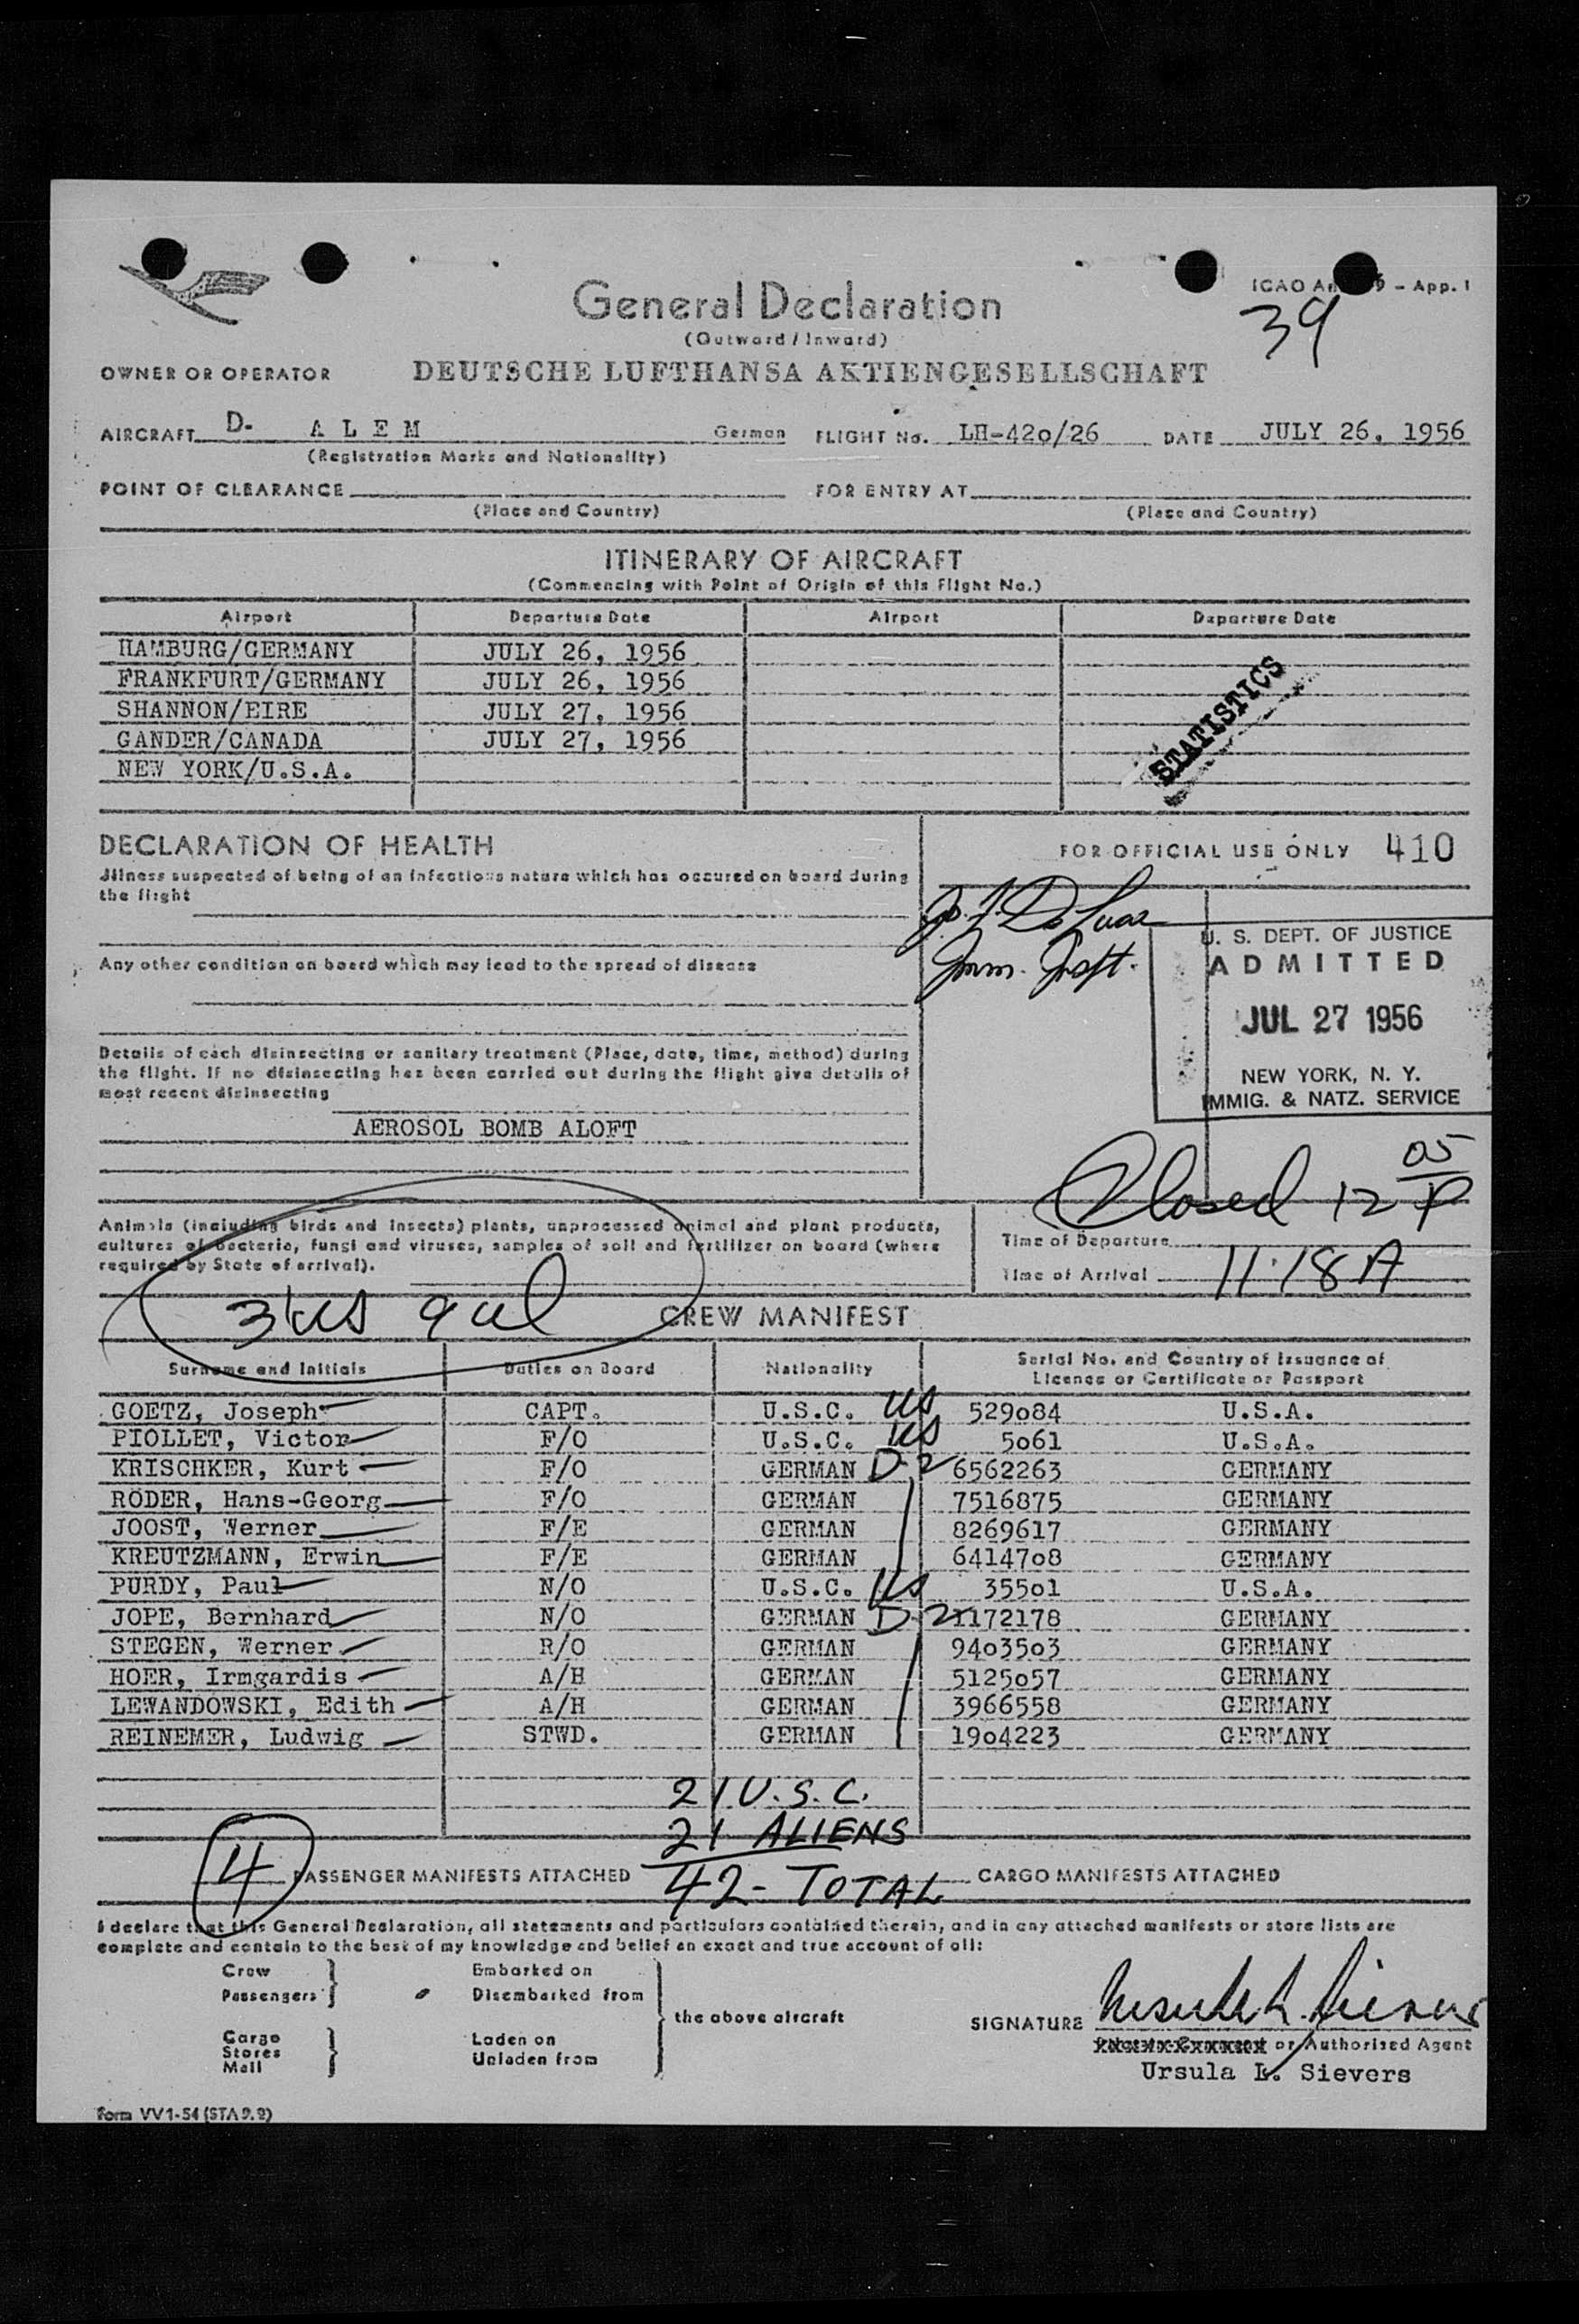 ICAO An 9 - App. 1
39
General Declaration
(Outward / Inward)
OWNER OR OPERATOR DEUTSCHE LUFTHANSA AKTIENGESELLSCHAFT
AIRCRAFT D- A L E M German FLIGHT No. LH-42o/26 DATE JULY 26, 1956
(Registration Marks and Nationality)
POINT OF CLEARANCE FOR ENTRY AT
(Place and Country) (Place and Country)
ITINERARY OF AIRCRAFT
(Commencing with Point of Origin of this Flight No.)
Airport Departure Date Airport Departure Date
HAMBURG/GERMANY JULY 26, 1956
FRANKFURT/GERMANY JULY 26, 1956
SHANNON/EIRE JULY 27, 1956
GANDER/CANADA JULY 27, 1956
NEW YORK/U.S.A.
STATISTICS
DECLARATION OF HEALTH
Illness suspected of being of an infectious nature which has occured on board during
the flight
Any other condition on board which may lead to the spread of disease
Details of each disinsecting or sanitary treatment (Place, date, time, method) during
the flight. If no disinsecting has been carried out during the flight give details of
most recent disinsecting
AEROSOL BOMB ALOFT
FOR OFFICIAL USE ONLY 410
De Luca
Imm. Inspt.
U. S. DEPT. OF JUSTICE
ADMITTED
JUL 27 1956
NEW YORK, N. Y.
IMMIG. & NATZ. SERVICE
Closed 12 05 P
Animals (including birds and insects) plants, unprocessed animal and plant products,
cultures of bacteria, fungi and viruses, samples of soil and fertilizer on board (where
required by State of arrival).
Time of Departure
Time of Arrival 11:18 A
3 US 9 al
CREW MANIFEST
Surname and Initials Duties on Board Nationality Serial No. and Country of Issuance of
Licence or Certificate or Passport
GOETZ, Joseph CAPT. U.S.C. US 529o84 U.S.A.
PIOLLET, Victor F/O U.S.C. US 5o61 U.S.A.
KRISCHKER, Kurt F/O GERMAN D-2 6562263 GERMANY
RÖDER, Hans-Georg F/O GERMAN 7516875 GERMANY
JOOST, Werner F/E GERMAN 8269617 GERMANY
KREUTZMANN, Erwin F/E GERMAN 64147o8 GERMANY
PURDY, Paul N/O U.S.C. US 355o1 U.S.A.
JOPE, Bernhard N/O GERMAN D-2 1172178 GERMANY
STEGEN, Werner R/O GERMAN 94o35o3 GERMANY
HOER, Irmgardis A/H GERMAN 5125o57 GERMANY
LEWANDOWSKI, Edith A/H GERMAN 3966558 GERMANY
REINEMER, Ludwig STWD. GERMAN 19o4223 GERMANY
21 U.S.C.
21 ALIENS
42 - TOTAL
4 PASSENGER MANIFESTS ATTACHED CARGO MANIFESTS ATTACHED
I declare that this General Declaration, all statements and particulars contained therein, and in any attached manifests or store lists are
complete and contain to the best of my knowledge and belief an exact and true account of all:
Crew Embarked on
Passengers Disembarked from
the above aircraft
Cargo Laden on
Stores Unladen from
Mail
SIGNATURE Ursula L. Sievers
or Authorised Agent
Ursula L. Sievers
Form VV1-54 (STA 9.2)